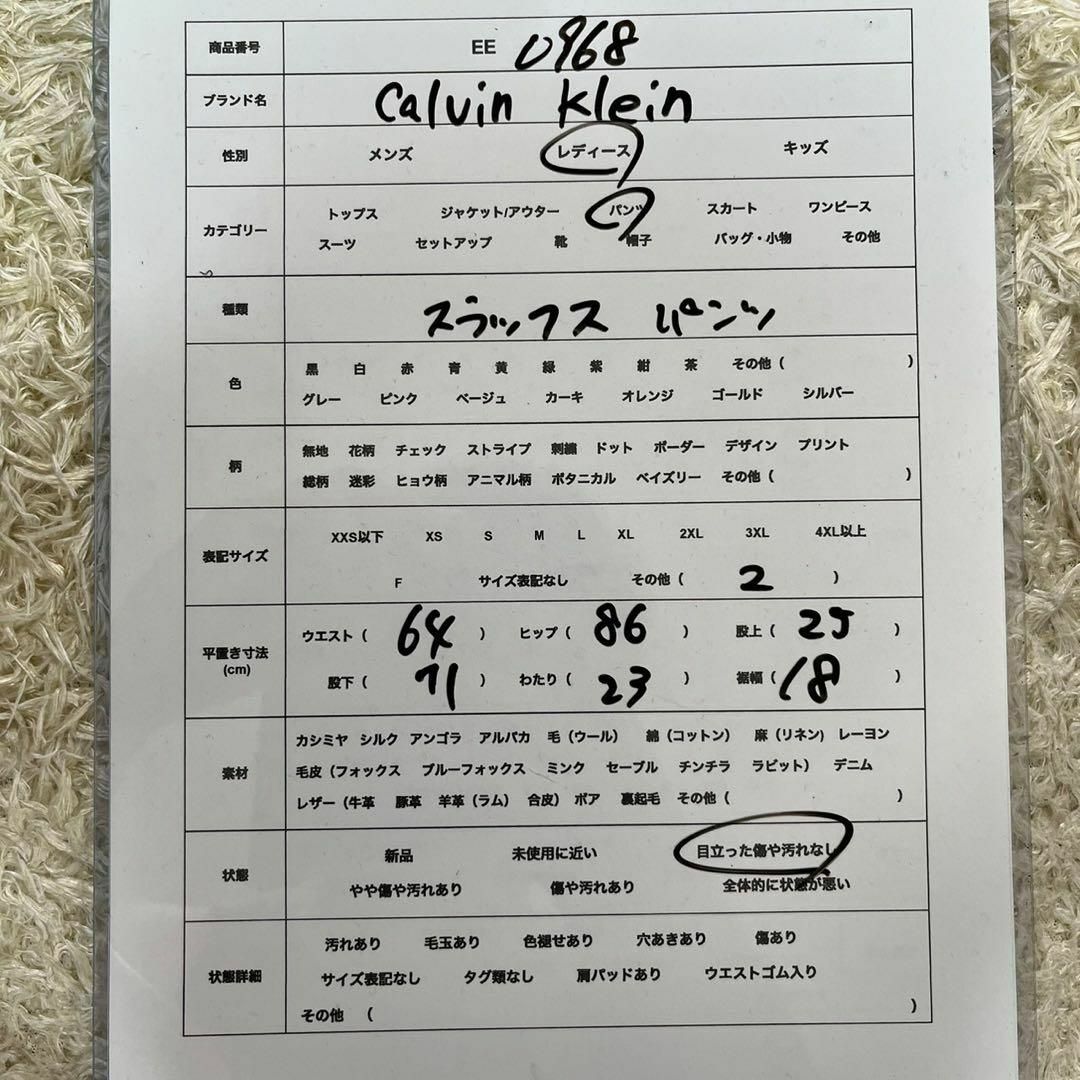 商品番号 EE 0968
ブランド名 Calvin Klein
性別 メンズ レディース キッズ
カテゴリー トップス ジャケット/アウター パンツ スカート ワンピース
スーツ セットアップ 靴 帽子 バッグ・小物 その他
種類 スラックス パンツ
色 黒 白 赤 青 黄 緑 紫 紺 茶 その他 ( )
グレー ピンク ベージュ カーキ オレンジ ゴールド シルバー
柄 無地 花柄 チェック ストライプ 刺繍 ドット ボーダー デザイン プリント
総柄 迷彩 ヒョウ柄 アニマル柄 ボタニカル ペイズリー その他 ( )
表記サイズ XXS以下 XS S M L XL 2XL 3XL 4XL以上
F サイズ表記なし その他 ( 2 )
平置き寸法 (cm) ウエスト ( 64 ) ヒップ ( 86 ) 股上 ( 25 )
股下 ( 71 ) わたり ( 23 ) 裾幅 ( 18 )
素材 カシミヤ シルク アンゴラ アルパカ 毛（ウール） 綿（コットン） 麻（リネン) レーヨン
毛皮（フォックス ブルーフォックス ミンク セーブル チンチラ ラビット） デニム
レザー（牛革 豚革 羊革（ラム） 合皮）ボア 裏起毛 その他 ( )
状態 新品 未使用に近い 目立った傷や汚れなし
やや傷や汚れあり 傷や汚れあり 全体的に状態が悪い
状態詳細 汚れあり 毛玉あり 色褪せあり 穴あきあり 傷あり
サイズ表記なし タグ類なし 肩パッドあり ウエストゴム入り
その他 ( )